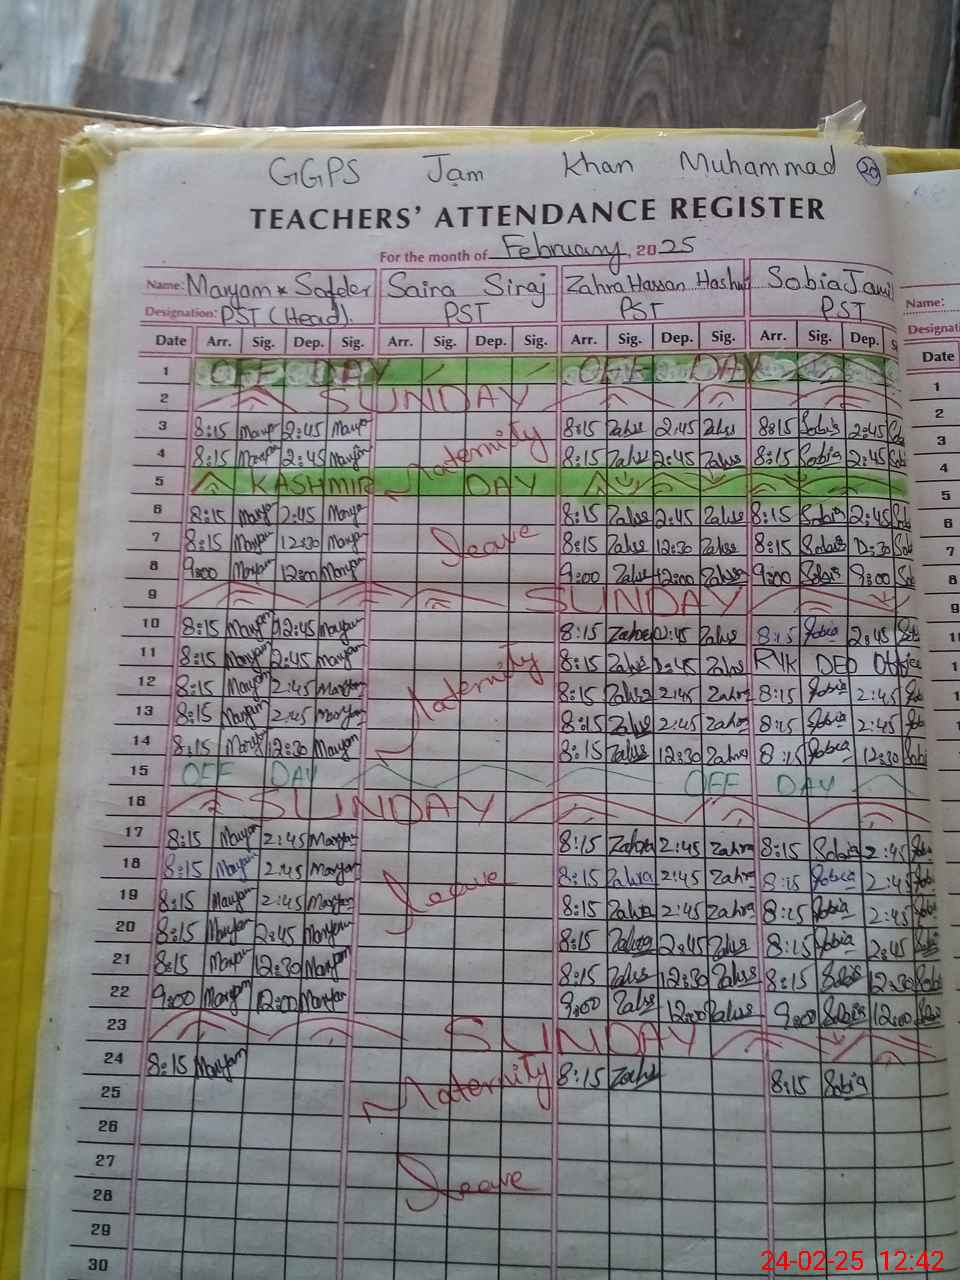 GGPS Jam Khan Muhammad 20
TEACHERS' ATTENDANCE REGISTER
For the month of February, 2025
Name: Maryam Safder Saira Siraj Zahra Hassan Hashmi Sobia Jamil Name:
Designation: PST (Head) PST PST PST
Date Arr. Sig. Dep. Sig. Arr. Sig. Dep. Sig. Arr. Sig. Dep. Sig. Arr. Sig. Dep. Date
1 OFF DAY OFF DAY 1
2 SUNDAY 2
3 8:15 Maryam 2:45 Maryam Maternity 8:15 Zahra 2:45 Zahra 8:15 Sobia 2:45 3
4 8:15 Maryam 2:45 Maryam 8:15 Zahra 2:45 Zahra 8:15 Sobia 2:45 4
5 KASHMIR DAY 5
6 8:15 Maryam 2:45 Maryam 8:15 Zahra 2:45 Zahra 8:15 Sobia 2:45 6
7 8:15 Maryam 12:30 Maryam leave 8:15 Zahra 12:30 Zahra 8:15 Sobia 12:30 7
8 9:00 Maryam 12:00 Maryam 9:00 Zahra 12:00 Zahra 9:00 Sobia 9:00 8
9 SUNDAY 9
10 8:15 Maryam 2:45 Maryam 8:15 Zahra 2:45 Zahra 8:15 Sobia 2:45
11 8:15 Maryam 2:45 Maryam Maternity 8:15 Zahra 2:45 Zahra DEO Office
12 8:15 Maryam 2:45 Maryam 8:15 Zahra 2:45 Zahra 8:15 Sobia 2:45
13 8:15 Maryam 2:45 Maryam 8:15 Zahra 2:45 Zahra 8:15 Sobia 2:45
14 8:15 Maryam 12:30 Maryam 8:15 Zahra 12:30 Zahra 8:15 Sobia 12:30
15 OFF DAY OFF DAY
16 SUNDAY
17 8:15 Maryam 2:45 Maryam 8:15 Zahra 2:45 Zahra 8:15 Sobia 2:45
18 8:15 Maryam 2:45 Maryam leave 8:15 Zahra 2:45 Zahra 8:15 Sobia 2:45
19 8:15 Maryam 2:45 Maryam 8:15 Zahra 2:45 Zahra 8:15 Sobia 2:45
20 8:15 Maryam 2:45 Maryam 8:15 Zahra 2:45 Zahra 8:15 Sobia 2:45
21 8:15 Maryam 12:30 Maryam 8:15 Zahra 12:30 Zahra 8:15 Sobia 12:30
22 9:00 Maryam 12:00 Maryam 9:00 Zahra 12:00 Zahra 9:00 Sobia 12:00
23 SUNDAY
24 8:15 Maryam Maternity 8:15 Zahra 8:15 Sobia
25
26
27 leave
28
29
30
24-02-25 12:42